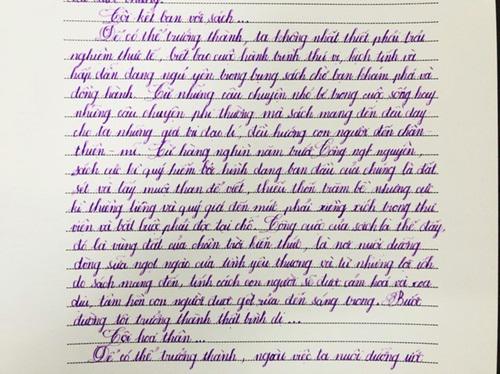 Tôi kết bạn với sách...
Để có thể trưởng thành, ta không nhất thiết phải trải
nghiệm thực tế, biết bao cuộc hành trình thú vị, kịch tính và
hấp dẫn đang ngủ yên trong trang sách chờ bạn khám phá và
đồng hành. Từ những câu chuyện nhỏ bé trong cuộc sống hay
những câu chuyện phi thường mà sách mang đến đều dạy
cho ta những giá trị đạo lí, đều hướng con người đến chân
thiện - mĩ. Từ hàng nghìn năm trước Công nguyên
sách cực kì quý hiếm bởi hình dạng ban đầu của chúng là đất
sét và lấy muội than để viết, thiếu thốn trăm bề nhưng cực
kì thiêng liêng và quý giá đến mức phải xiềng xích trong thư
viện và bắt buộc phải đọc tại chỗ. Công cuộc của sách là thế đấy,
đó là vùng đất của chân trời kiến thức, là nơi nuôi dưỡng
dòng sữa ngọt ngào của tình yêu thương và từ những lợi ích
do sách mang đến, tính cách con người sẽ được cảm hoá và xoa
dịu, tâm hồn con người được gột rửa đến sáng trong. Bước
đường tôi trưởng thành thật bình dị...
Tôi hoà thân...
Để có thể trưởng thành, ngoài việc ta nuôi dưỡng ước